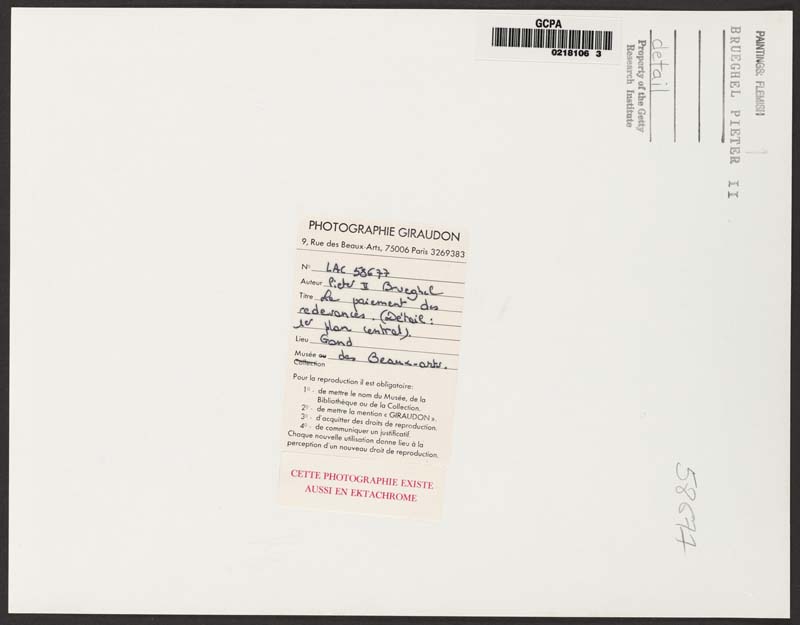 GCPA
0218106 3
PAINTINGS: FLEMISH
BRUEGHEL PIETER II
detail
Property of the Getty
Research Institute
PHOTOGRAPHIE GIRAUDON
9, Rue des Beaux-Arts, 75006 Paris 3269383
N° LAC 58677
Auteur Pieter II Brueghel
Titre Le paiement des
redevances. (Détail:
1er plan central).
Lieu Gand
Musée ou des Beaux-arts.
Collection
Pour la reproduction il est obligatoire:
1° - de mettre le nom du Musée, de la
Bibliothèque ou de la Collection.
2° - de mettre la mention « GIRAUDON ».
3° - d'acquitter des droits de reproduction.
4° - de communiquer un justificatif.
Chaque nouvelle utilisation donne lieu à la
perception d'un nouveau droit de reproduction.
CETTE PHOTOGRAPHIE EXISTE
AUSSI EN EKTACHROME
58677